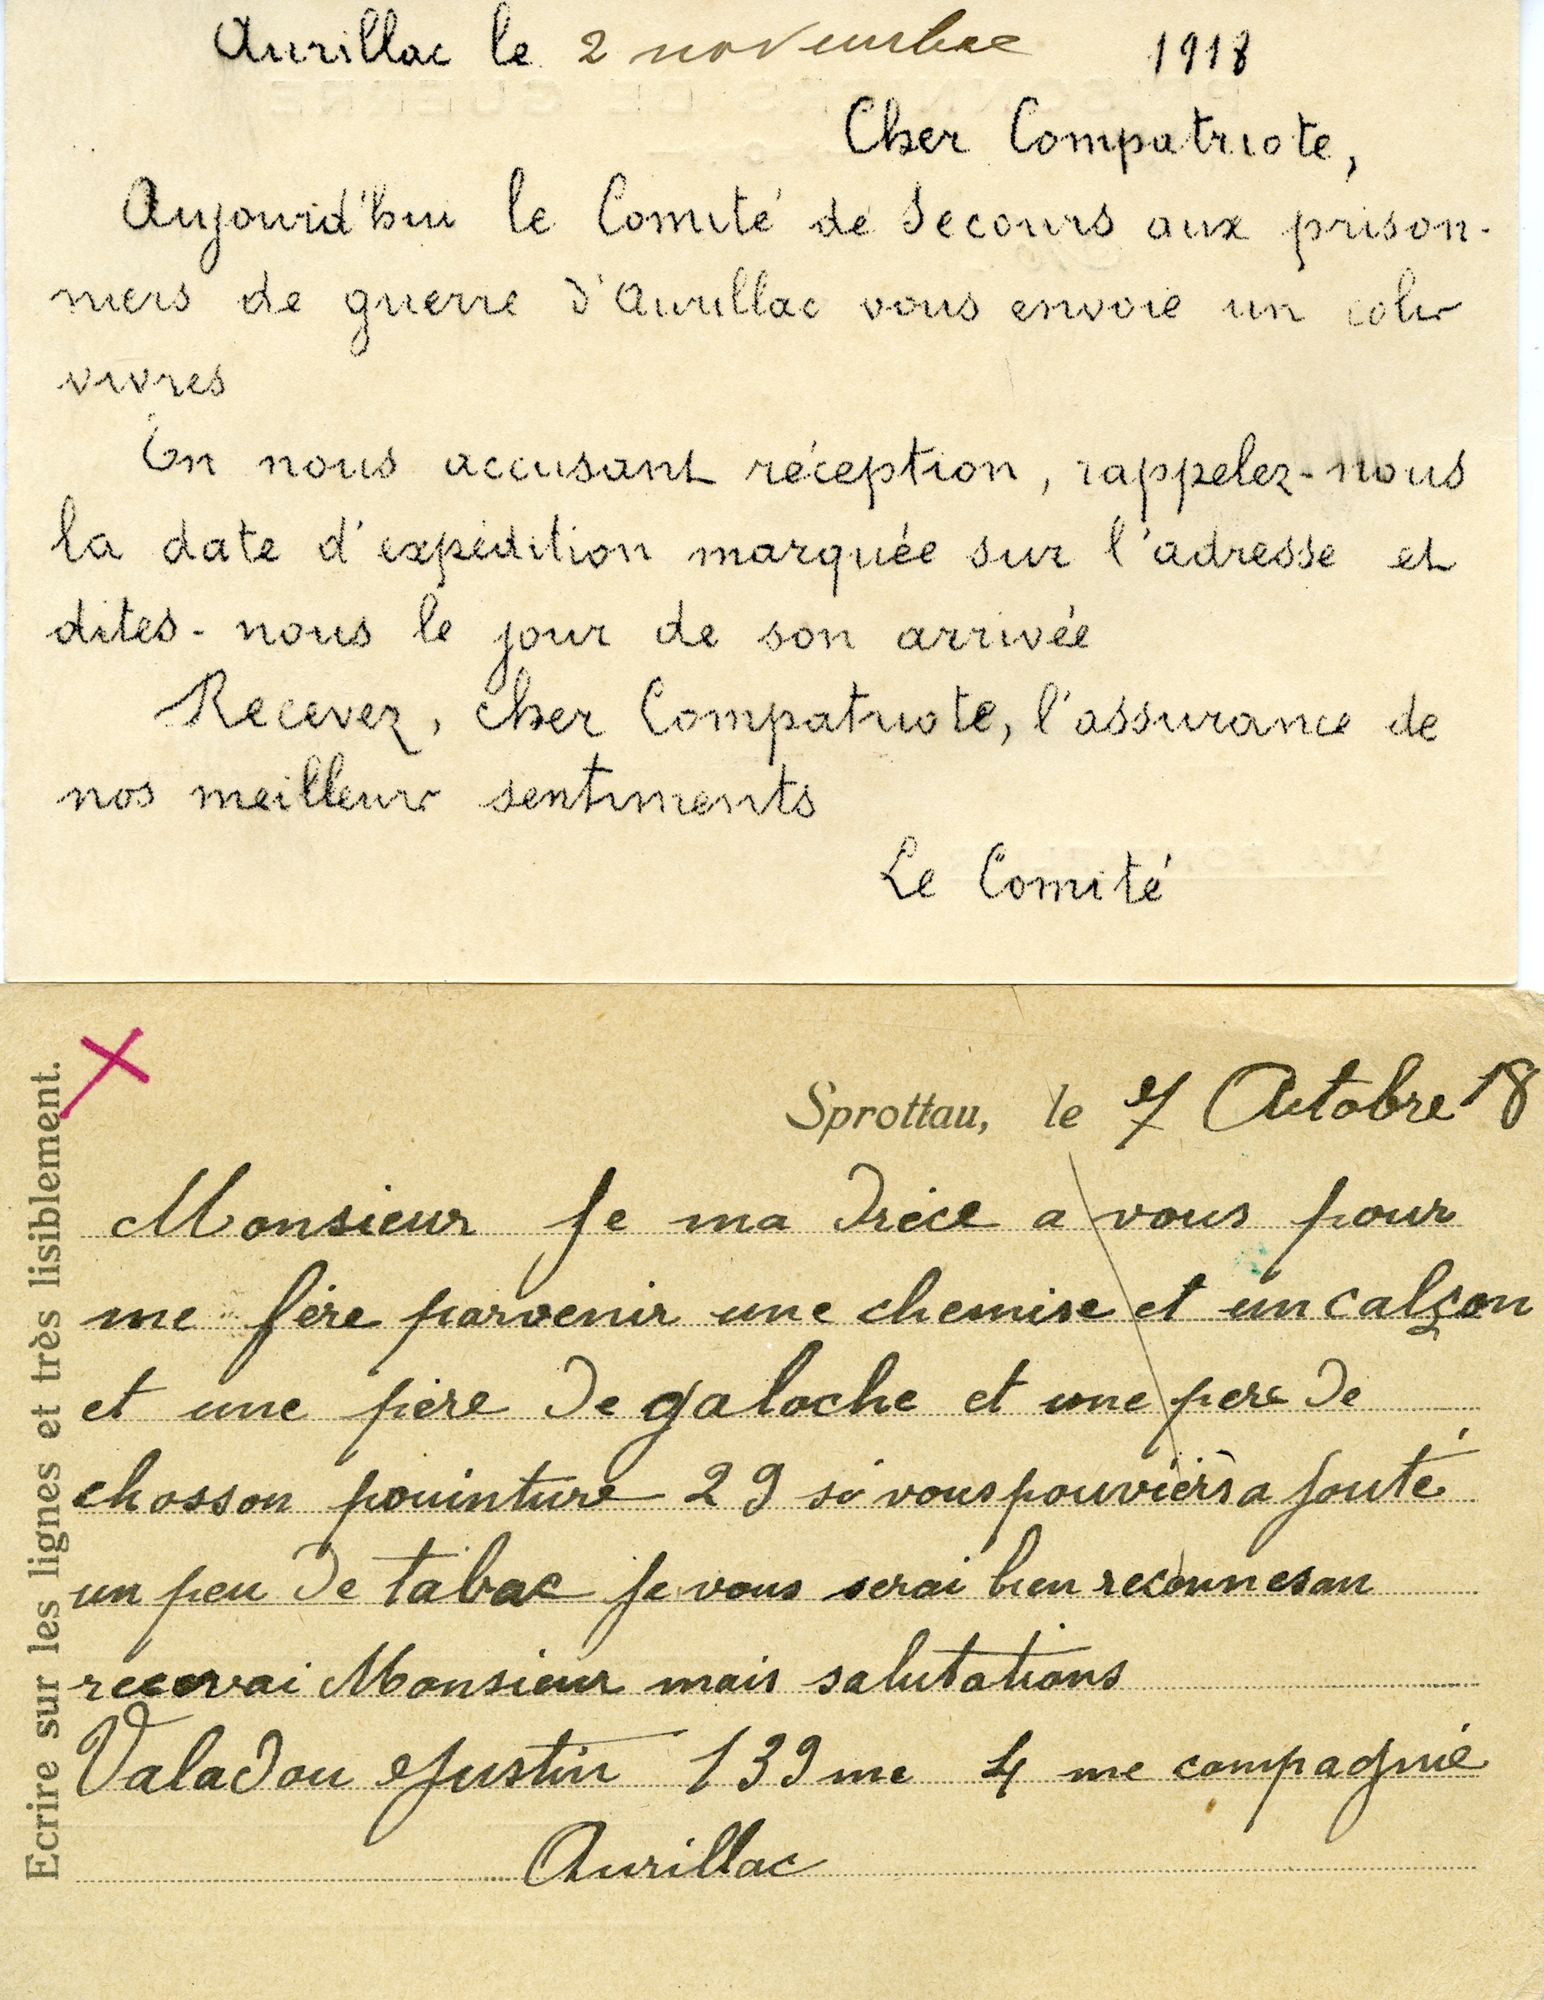 Aurillac le 2 novembre 1918
Cher Compatriote,
Aujourd'hui le Comité de Secours aux prison-
niers de guerre d'Aurillac vous envoie un colis
vivres
En nous accusant réception, rappelez-nous
la date d'expédition marquée sur l'adresse et
dites-nous le jour de son arrivée
Recevez, cher Compatriote, l'assurance de
nos meilleurs sentiments
Le Comité
Ecrire sur les lignes et très lisiblement.
Sprottau, le 7 Octobre 18
Monsieur Je ma drèce a vous pour
me fère parvenir une chemise et un calçon
et une père de galoche et une pere de
chosson pouinture 29 si vous pouvièrs a jouté
un peu de tabac je vous serai bien reconnesan
recevai Monsieur mais salutations
Valadou Justin 139me 4 me compagnie
Aurillac